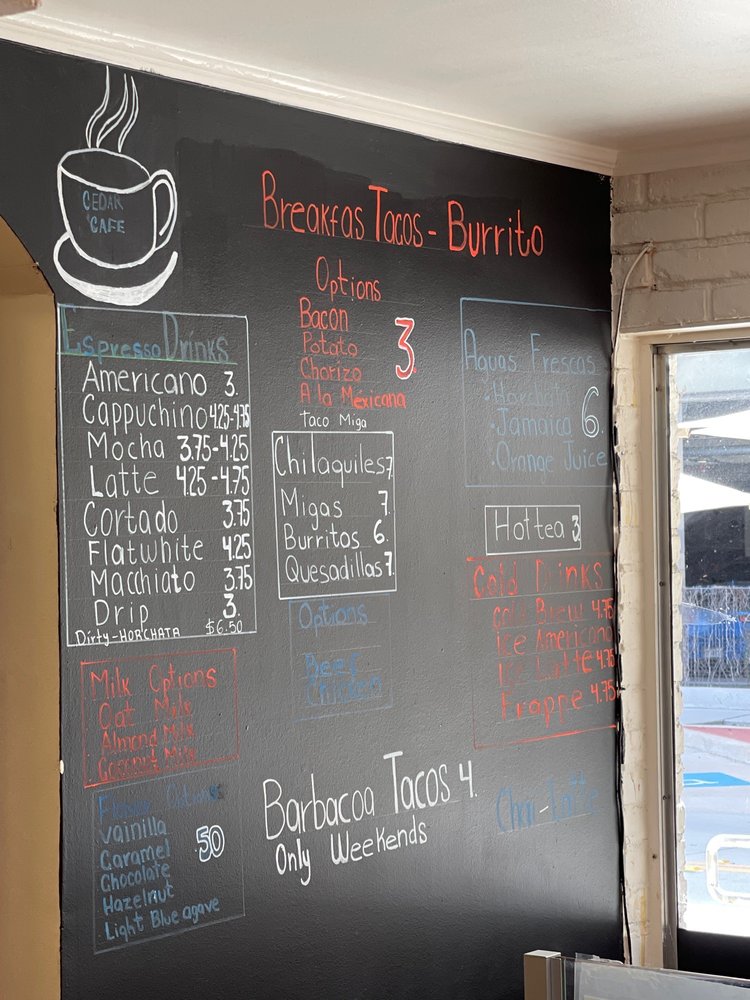 CEDAR
CAFE
Breakfas Tacos - Burrito
Options
Bacon
Potato
Chorizo
A la Mexicana
3.
Taco Miga
Espresso Drinks
Americano 3.
Cappuchino 4.25-4.75
Mocha 3.75-4.25
Latte 4.25-4.75
Cortado 3.75
Flatwhite 4.25
Macchiato 3.75
Drip 3.
Dirty-HORCHATA $6.50
Milk Options
Oat Milk
Almond Milk
Coconut Milk
Flavor Options
Vainilla
Caramel
Chocolate
Hazelnut
Light Blue agave
50
Chilaquiles 7
Migas 7.
Burritos 6.
Quesadillas 7.
Options
Beef
Chicken
Barbacoa Tacos 4.
Only Weekends
Aguas Frescas
Horchata
Jamaica
Orange Juice
6.
Hot tea 3.
Cold Drinks
Cold Brew 4.75
Ice Americano
Ice Latte 4.75
Frappe 4.75
Chai-Latte